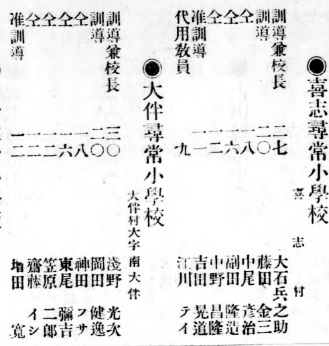 ●喜志尋常小學校
喜志村
訓導兼校長 二七 大石兵之助
訓導 二〇 藤田金三
仝 一八 中尾彦治
仝 一六 副田隆造
仝 一二 中野昌隆
准訓導 一一 吉田晃道
代用教員 九 江川テイ
●大伴尋常小學校
大伴村大字南大伴
訓導兼校長 三〇 淺野光次
訓導 二〇 岡田健逸
仝 一八 神田フサ
仝 一六 東尾彌吉
仝 一二 笠原二郎
仝 一二 齋藤イシ
准訓導 一二 増田寛